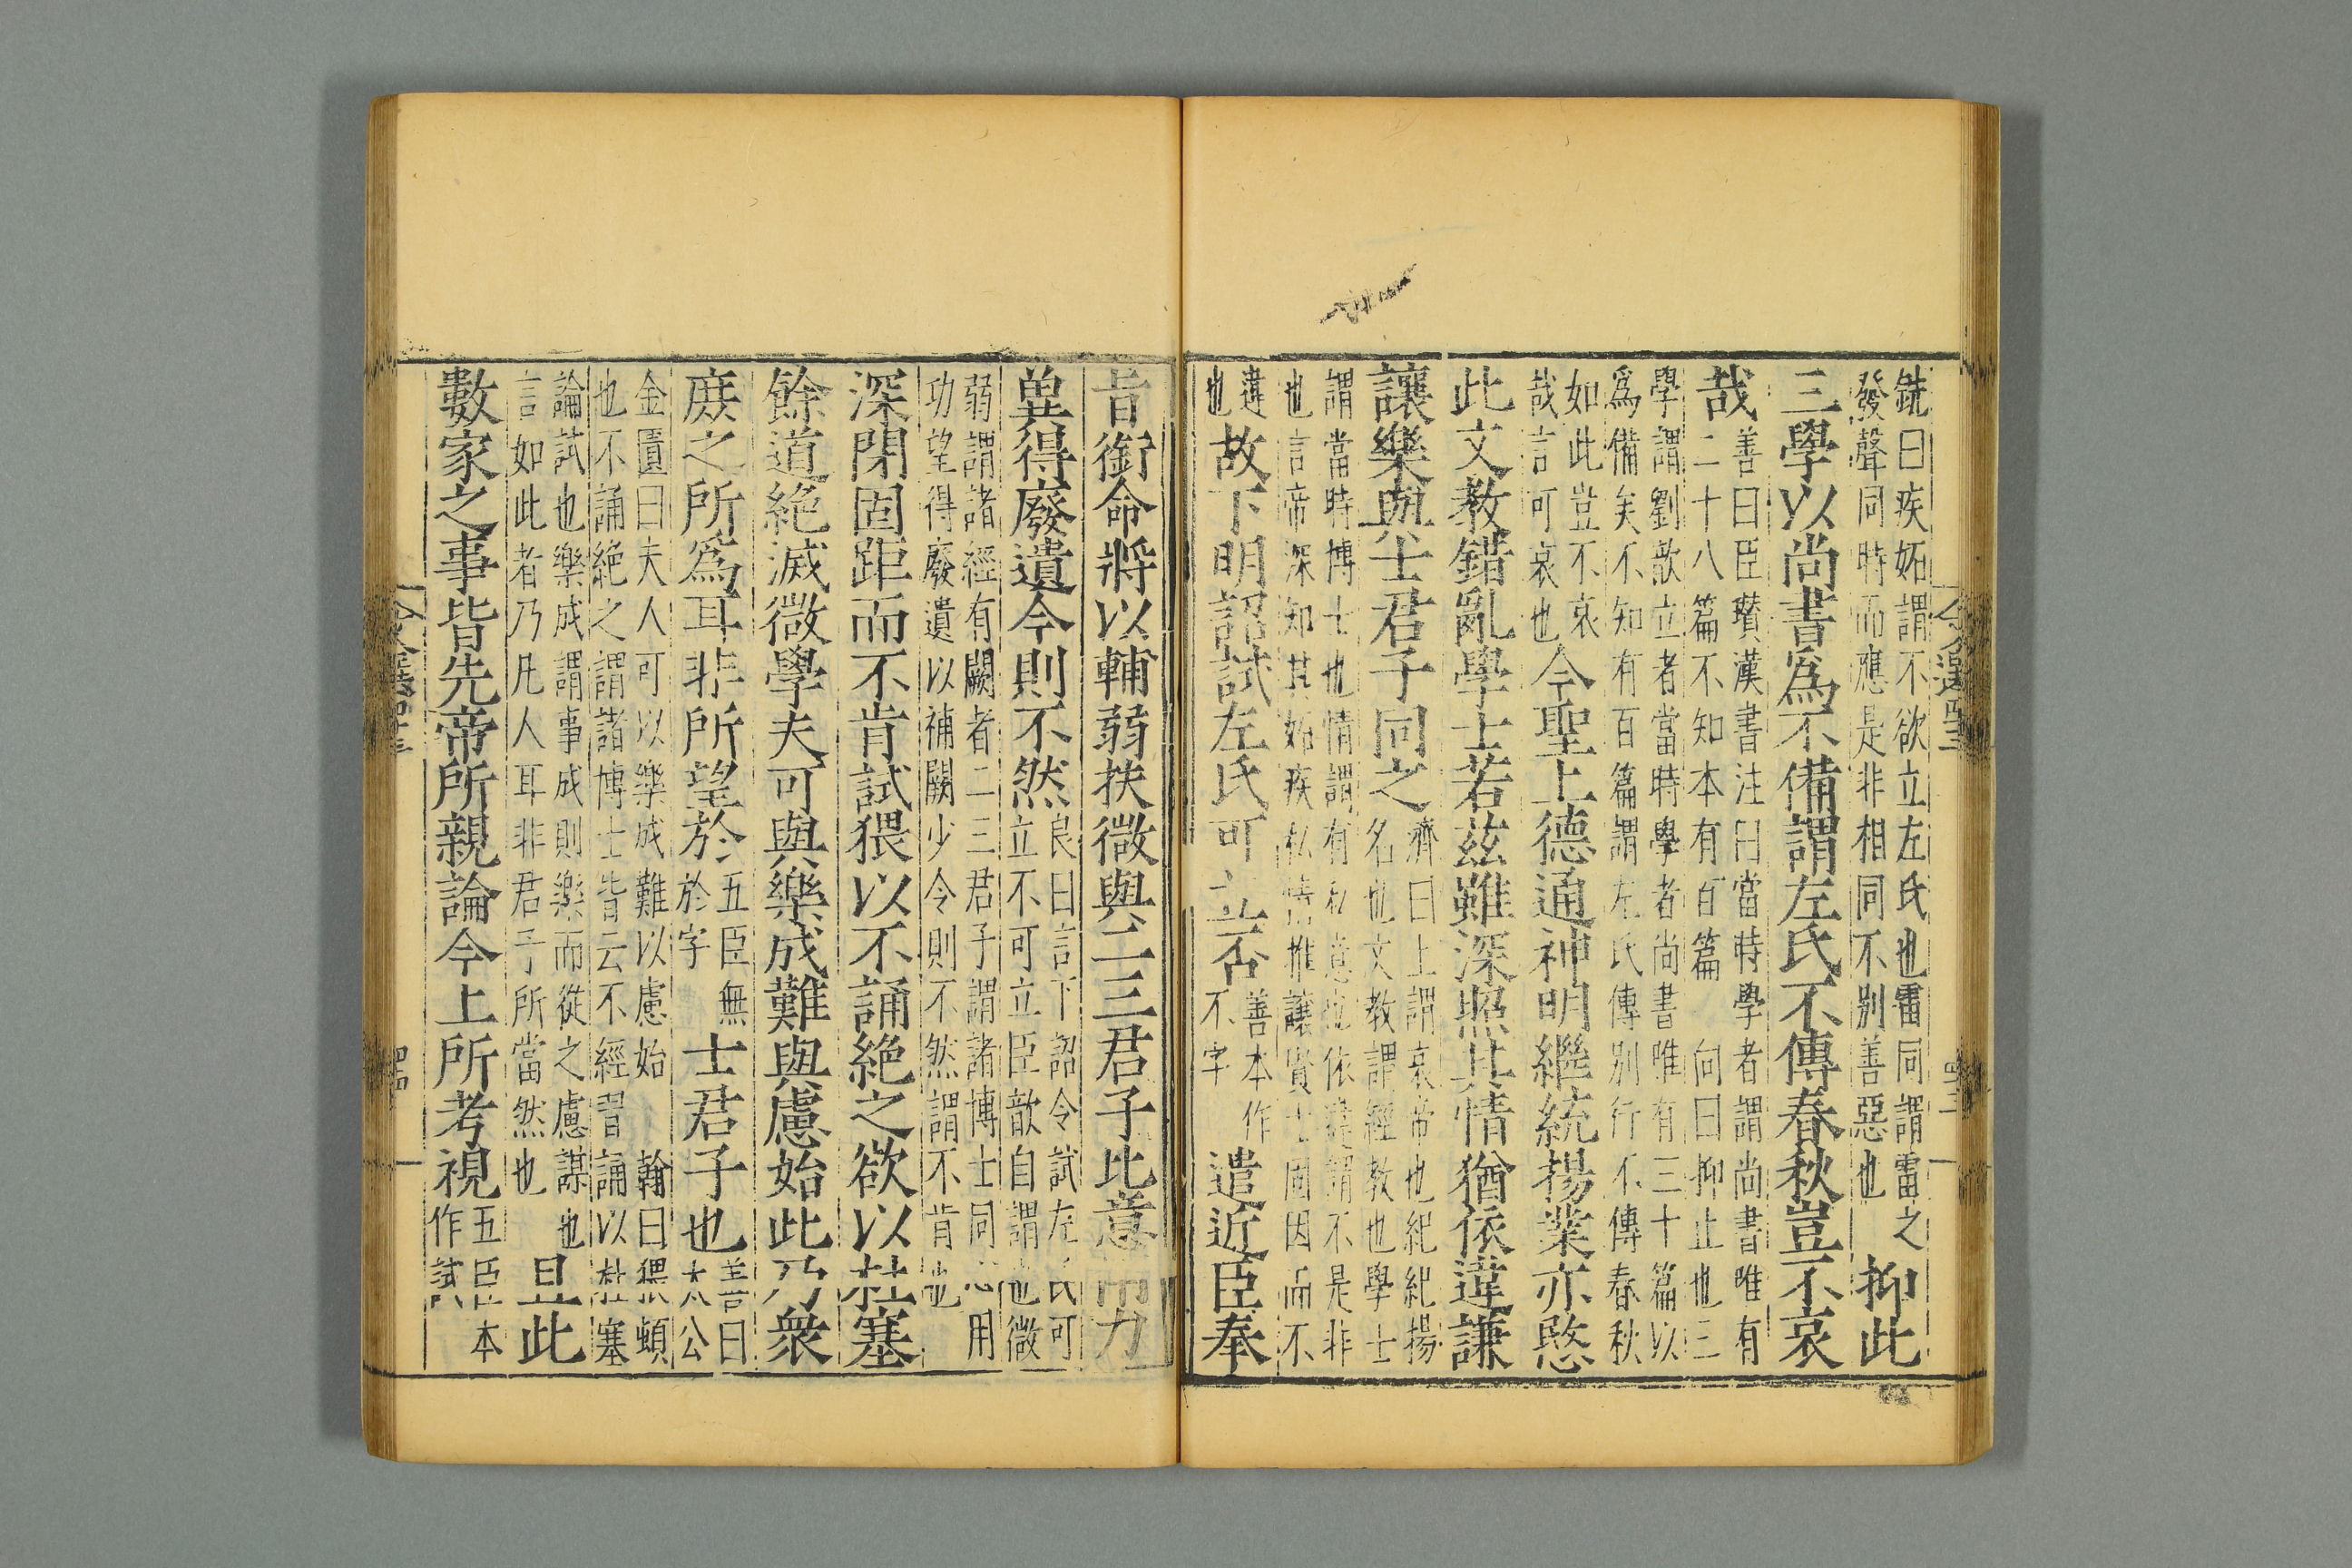 銑曰疾妬謂不欲立左氏也雷同謂雷之
發聲同時而應是非相同不別善惡也
抑此
三學以尚書爲不備謂左氏不傳春秋豈不哀
哉
善曰臣瓉漢書注曰當時學者謂尚書唯有
二十八篇不知本有百篇 向曰抑止也三
學謂劉歆立者當時學者尚書唯有三十篇以
爲備矣不知有百篇謂左氏傳別行不傳春秋
如此豈不哀
哉言可哀也
今聖上德通神明繼統揚業亦愍
此文教錯亂學士若茲雖深照其情猶依違謙
讓樂與士君子同之
濟曰上謂哀帝也紀紀揚
名也文教謂經教也學士
謂當時博士也情謂有私意也依違謂不是非
也言帝深知其妬疾私情推讓賢士固因而不
違
也
故下明詔試左氏可立否
善本作
不字
遣近臣奉
旨銜命將以輔弱扶微與二三君子比意同力
兾得廢遺今則不然
良曰言下詔令試左氏可
立不可立臣歆自謂也微
弱謂諸經有闕者二三君子謂諸博士同心用
功望得廢遺以補闕少令則不然謂不肯也
深閉固距而不肯試猥以不誦絶之欲以杜塞
餘道絶滅微學夫可與樂成難與慮始此乃衆
庻之所爲耳非所望於
五臣無
於字
士君子也
善曰
太公
金匱曰夫人可以樂成難以慮始 翰曰猥頓
也不誦絶之謂諸博士皆云不經習誦以杜塞
論試也樂成謂事成則樂而從之慮謀也
言如此者乃凡人耳非君子所當然也
且此
數家之事皆先帝所親論今上所考視
五臣本
作試